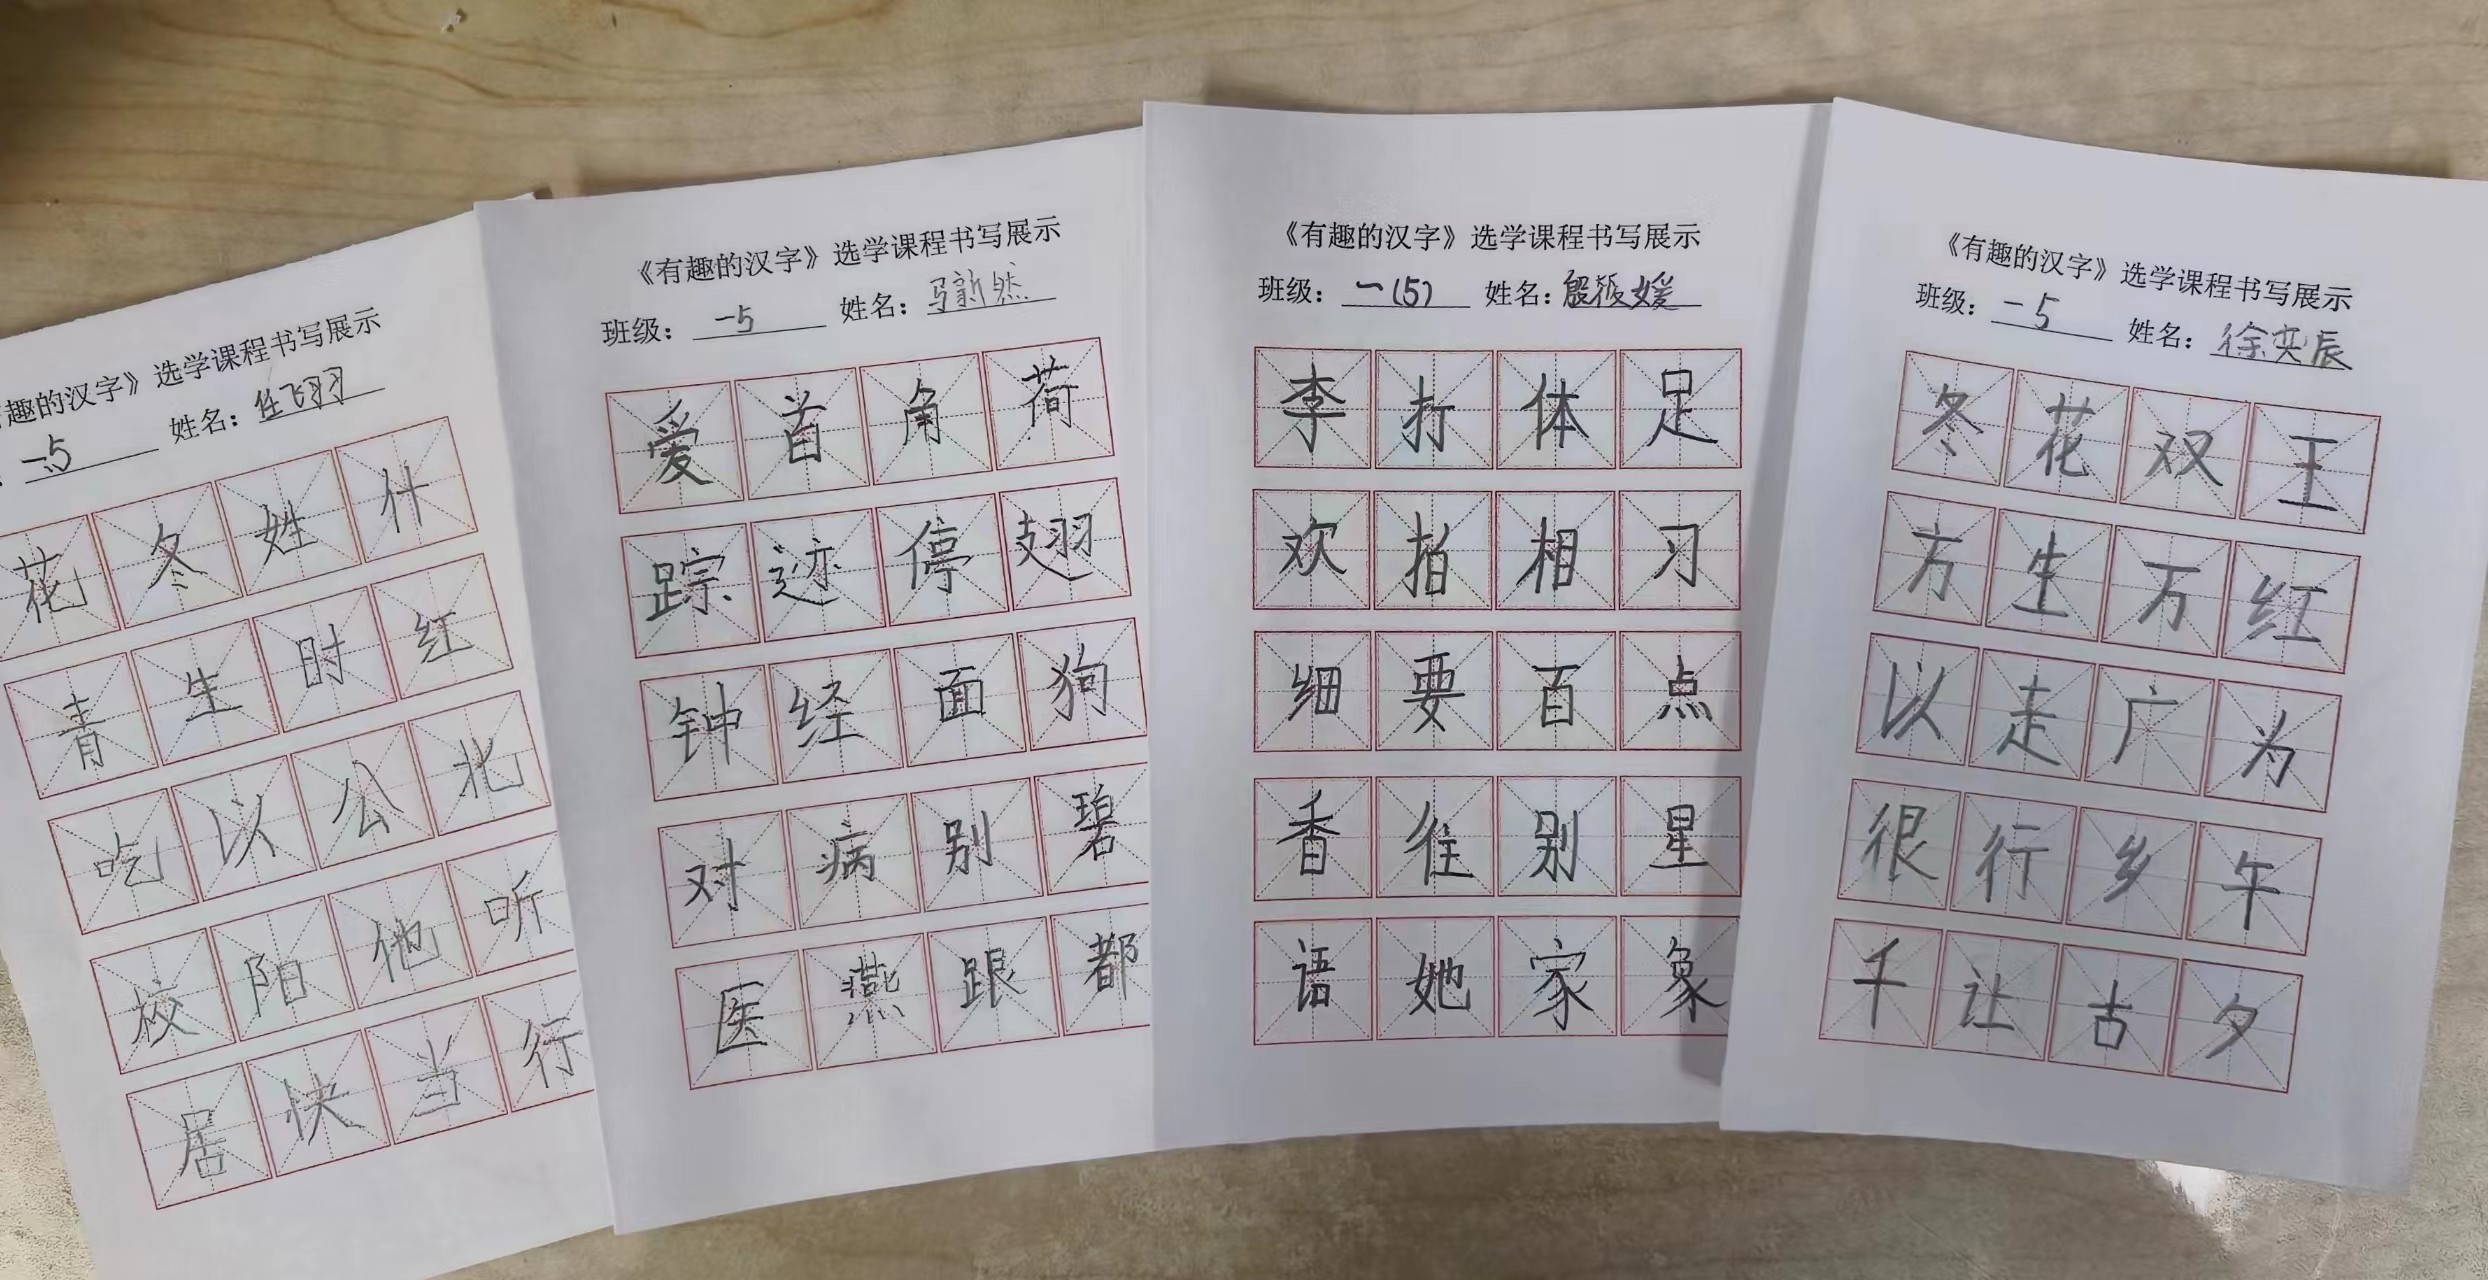 趣的汉字》选学课程书写展示
一5 姓名：任飞羽
花冬姓什
青生时红
吃以公北
校阳他听
居快当行
《有趣的汉字》选学课程书写展示
班级：一5 姓名：马新然
爱首角荷
踪迹停翅
钟经面狗
对病别碧
医燕跟都
《有趣的汉字》选学课程书写展示
班级：一(5) 姓名：殷筱媛
李打体足
欢拍相习
细要百点
香往别星
语她家象
《有趣的汉字》选学课程书写展示
班级：一5 姓名：徐奕辰
冬花双王
方生万红
以走广为
很行乡午
千让古夕